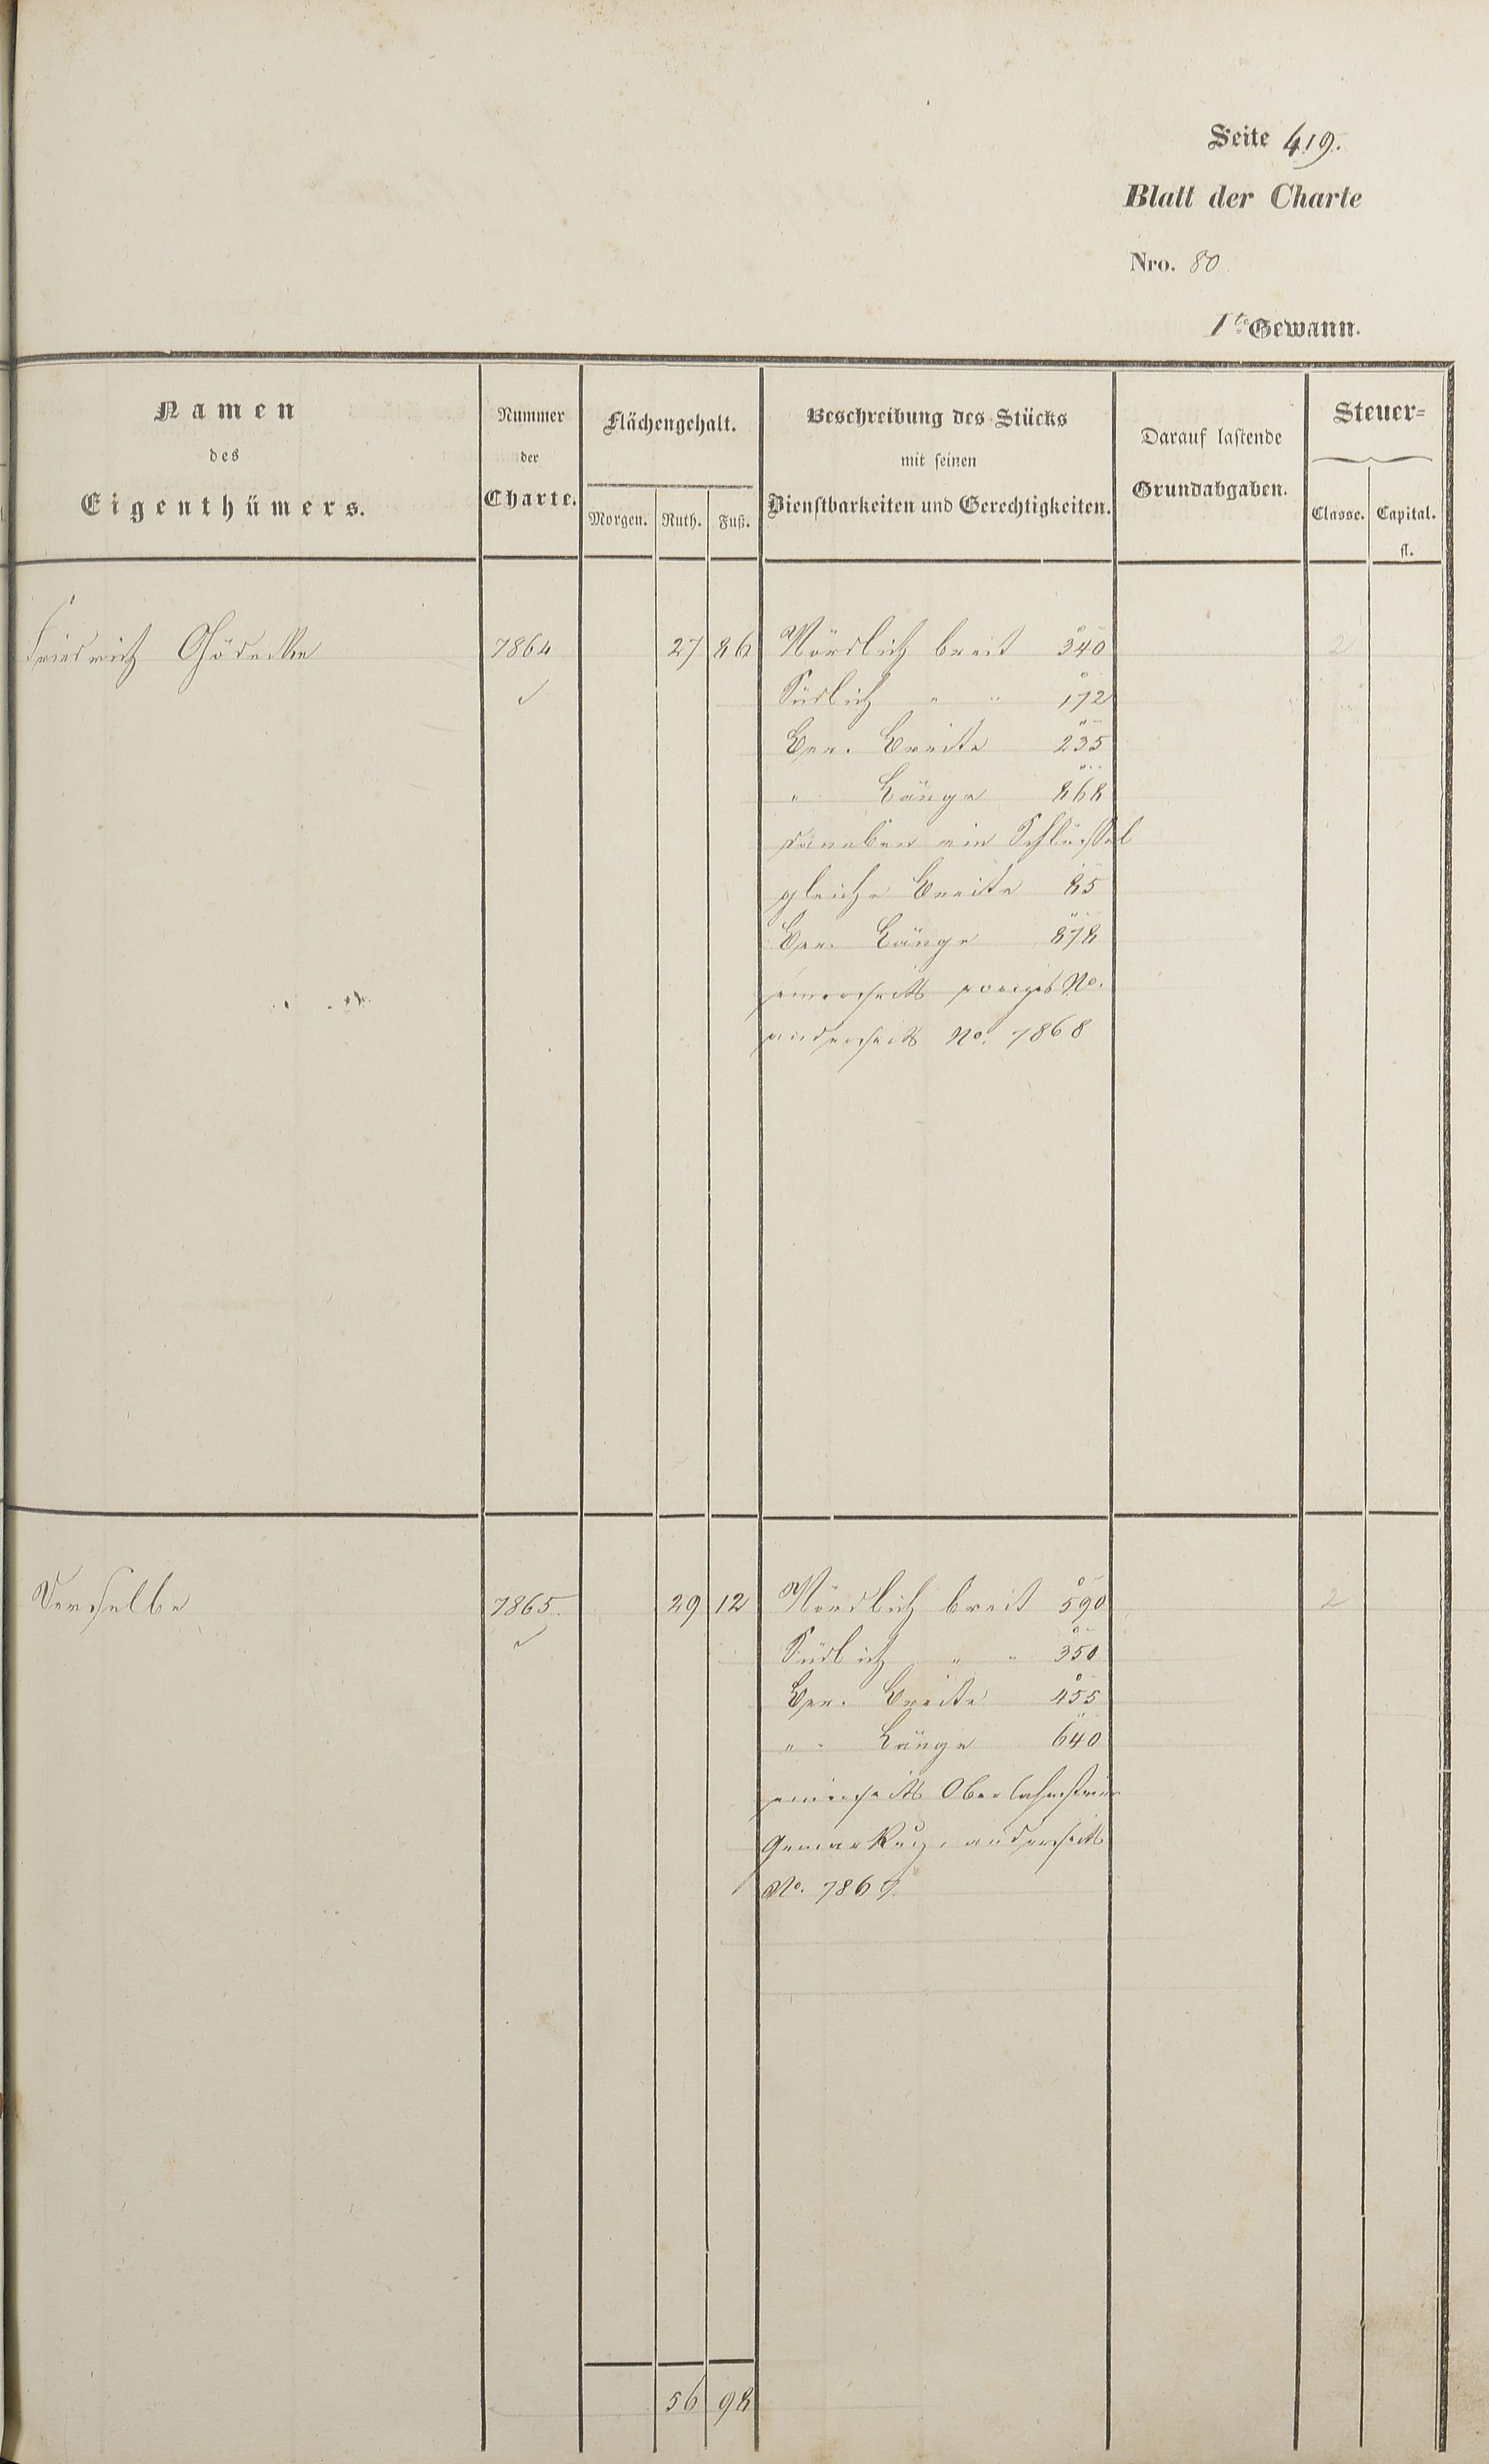 Seite 419.
Blatt der Charte
Nro. 80
1te Gewann.
Namen
des
Eigenthümers.
Nummer
der
Charte.
Flächengehalt.
Morgen. Ruth. Fuß.
Beschreibung des Stücks
mit seinen
Dienstbarkeiten und Gerechtigkeiten.
Darauf lastende
Grundabgaben.
Steuer-
Classe. Capital.
fl.
Friedrich Gödecke 7864 27 86 Nördlich breit 340 2
Südlich " " 172
Ger. Breite 235
" Länge 868
daneben ein Schlüssel
gleiche Breite 85
Ger. Länge 878
einerseits voriges No.
anderseits No. 7868
Derselbe 7865. 29 12 Nördlich breit 590 2
Südlich " " 350
Ger. Breite 455
" Länge 640
einerseits Oberlahnsteiner
Gemarkung, anderseits
No. 7867
56 98